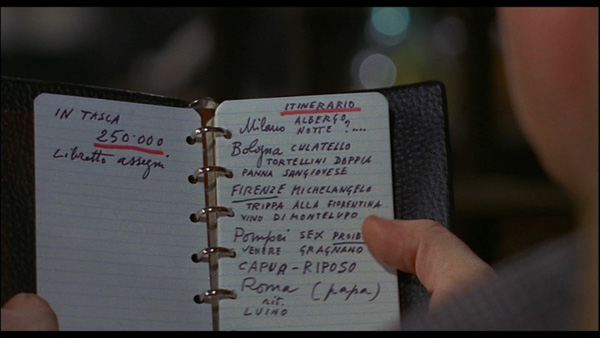 IN TASCA
250.000
Libretto assegni
ITINERARIO
Milano ALBERGO
NOTTE ?....
Bologna CULATELLO
TORTELLINI DOPPIA
PANNA SANGIOVESE
FIRENZE MICHELANGELO
TRIPPA ALLA FIORENTINA
VINO DI MONTELUPO
Pompei SEX PROIB
VENERE GRAGNANO
CAPUA - RIPOSO
Roma (papa)
rit.
LUINO